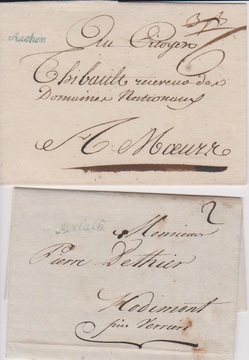 Aachen
Au Citoyen
Thibault receveur des
Domaines Nationaux
A Mœurs
2
Monsieur
Pierre Dethier
Hodimont
près Verviers